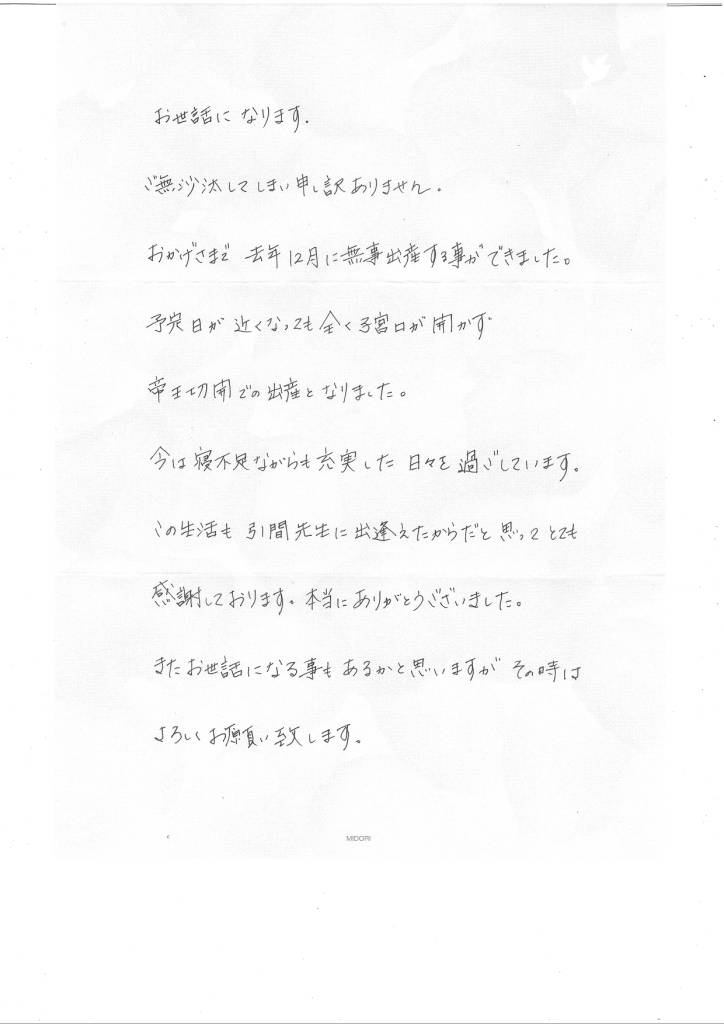 お世話になります.
ご無沙汰してしまい申し訳ありません.
おかげさまで 去年12月に無事出産する事ができました。
予定日が近くなっても全く子宮口が開かず
帝王切開での出産となりました。
今は寝不足ながらも充実した日々を過ごしています。
この生活も引間先生に出逢えたからだと思ってとても
感謝しております。本当にありがとうございました。
またお世話になる事もあるかと思いますが その時は
よろしくお願い致します。
MIDORI